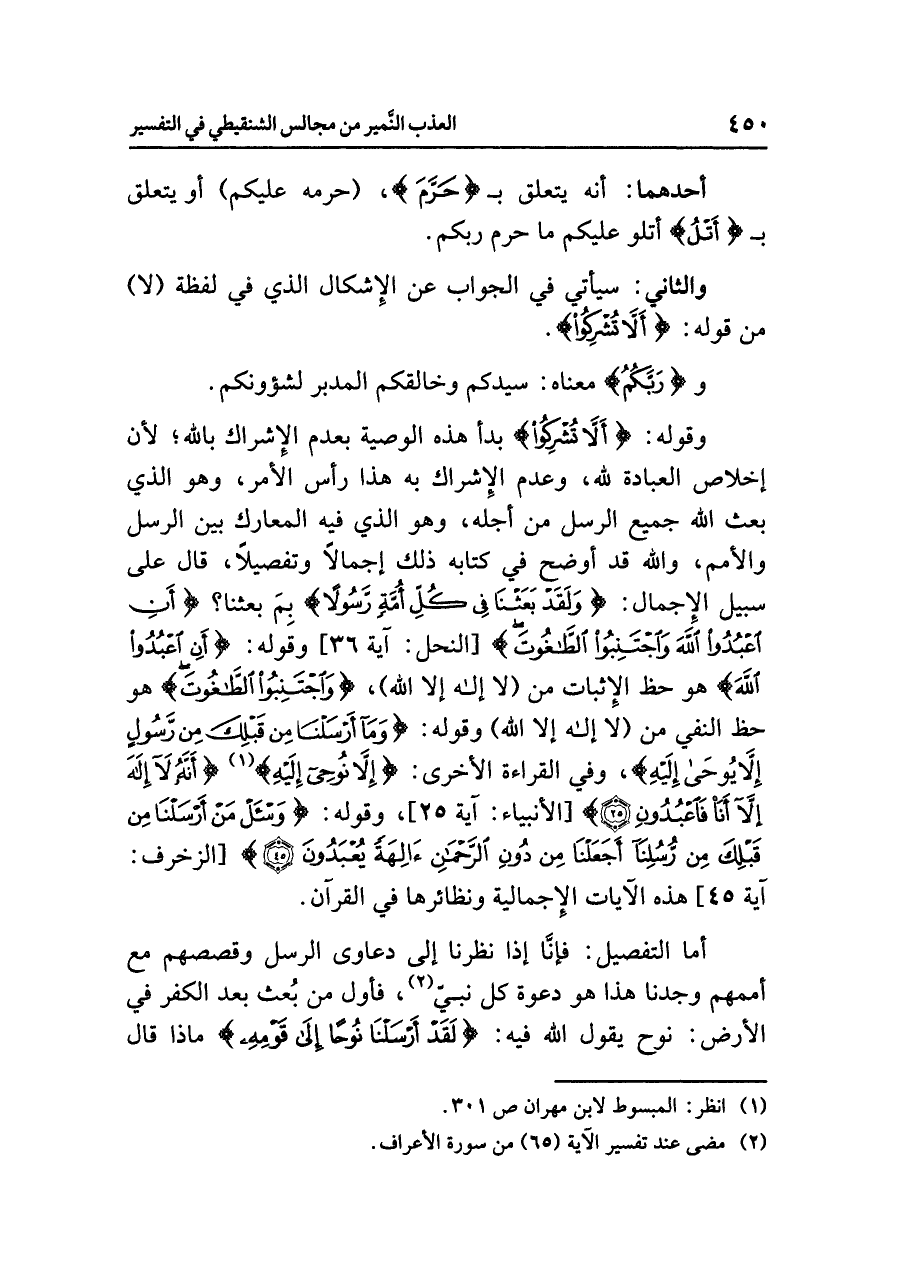 ٤٥٠ العذب النَّمير من مجالس الشنقيطي في التفسير
أحدهما: أنه يتعلق بـ ﴿حَرَّمَ﴾، (حرمه عليكم) أو يتعلق
بـ ﴿أَتْلُ﴾ أتلو عليكم ما حرم ربكم.
والثاني: سيأتي في الجواب عن الإِشكال الذي في لفظة (لا)
من قوله: ﴿أَلَّا تُشْرِكُوا۟﴾.
و ﴿رَبُّكُمْ﴾ معناه: سيدكم وخالقكم المدبر لشؤونكم.
وقوله: ﴿أَلَّا تُشْرِكُوا۟﴾ بدأ هذه الوصية بعدم الإِشراك بالله؛ لأن
إخلاص العبادة لله، وعدم الإِشراك به هذا رأس الأمر، وهو الذي
بعث الله جميع الرسل من أجله، وهو الذي فيه المعارك بين الرسل
والأمم، والله قد أوضح في كتابه ذلك إجمالاً وتفصيلاً، قال على
سبيل الإِجمال: ﴿وَلَقَدْ بَعَثْنَا فِى كُلِّ أُمَّةٍ رَّسُولًا﴾ بِمَ بعثنا؟ ﴿أَنِ
ٱعْبُدُوا۟ ٱللَّهَ وَٱجْتَنِبُوا۟ ٱلطَّٰغُوتَ ۖ﴾ [النحل: آية ٣٦] وقوله: ﴿أَنِ ٱعْبُدُوا۟
ٱللَّهَ﴾ هو حظ الإِثبات من (لا إلـٰه إلا الله)، ﴿وَٱجْتَنِبُوا۟ ٱلطَّٰغُوتَ ۖ﴾ هو
حظ النفي من (لا إلـٰه إلا الله) وقوله: ﴿وَمَآ أَرْسَلْنَا مِن قَبْلِكَ مِن رَّسُولٍ
إِلَّا يُوحَىٰ إِلَيْهِ﴾، وفي القراءة الأخرى: ﴿إِلَّا نُوحِىٓ إِلَيْهِ﴾(١) ﴿أَنَّهُۥ لَآ إِلَٰهَ
إِلَّآ أَنَا۠ فَٱعْبُدُونِ ٢٥﴾ [الأنبياء: آية ٢٥]، وقوله: ﴿وَسْـَٔلْ مَنْ أَرْسَلْنَا مِن
قَبْلِكَ مِن رُّسُلِنَآ أَجَعَلْنَا مِن دُونِ ٱلرَّحْمَٰنِ ءَالِهَةً يُعْبَدُونَ ٤٥﴾ [الزخرف:
آية ٤٥] هذه الآيات الإِجمالية ونظائرها في القرآن.
أما التفصيل: فإنَّا إذا نظرنا إلى دعاوى الرسل وقصصهم مع
أممهم وجدنا هذا هو دعوة كل نبيّ(٢)، فأول من بُعث بعد الكفر في
الأرض: نوح يقول الله فيه: ﴿لَقَدْ أَرْسَلْنَا نُوحًا إِلَىٰ قَوْمِهِۦ﴾ ماذا قال
(١) انظر: المبسوط لابن مهران ص ٣٠١.
(٢) مضى عند تفسير الآية (٦٥) من سورة الأعراف.